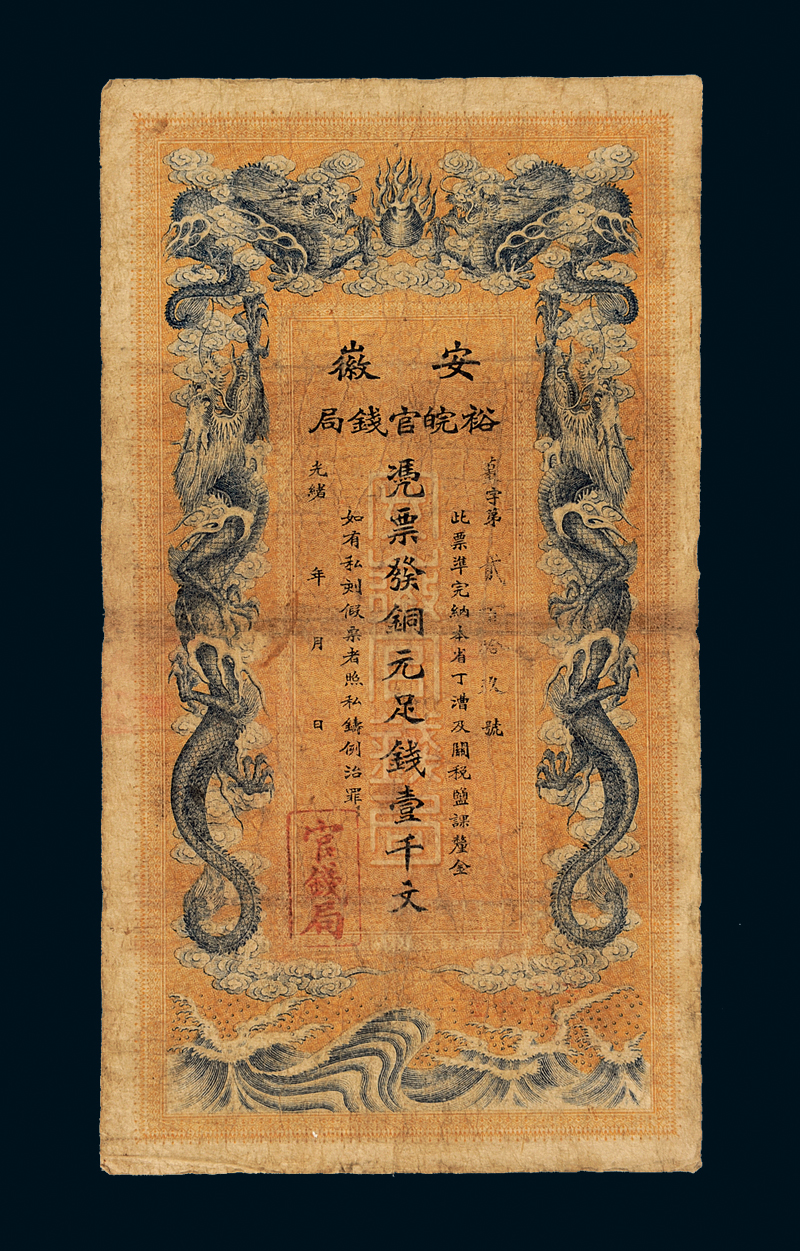 安徽
裕皖官錢局
字第貳百拾玖號
此票準完納本省丁漕及關税鹽課釐金
憑票發銅元足錢壹千文
如有私刻假票者照私鑄例治罪
光緒 年 月 日
官錢局